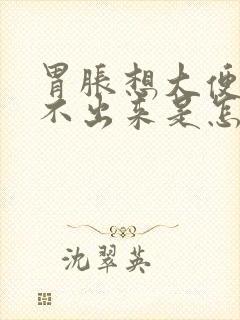 胃胀想大便
不出来是怎
沈翠英